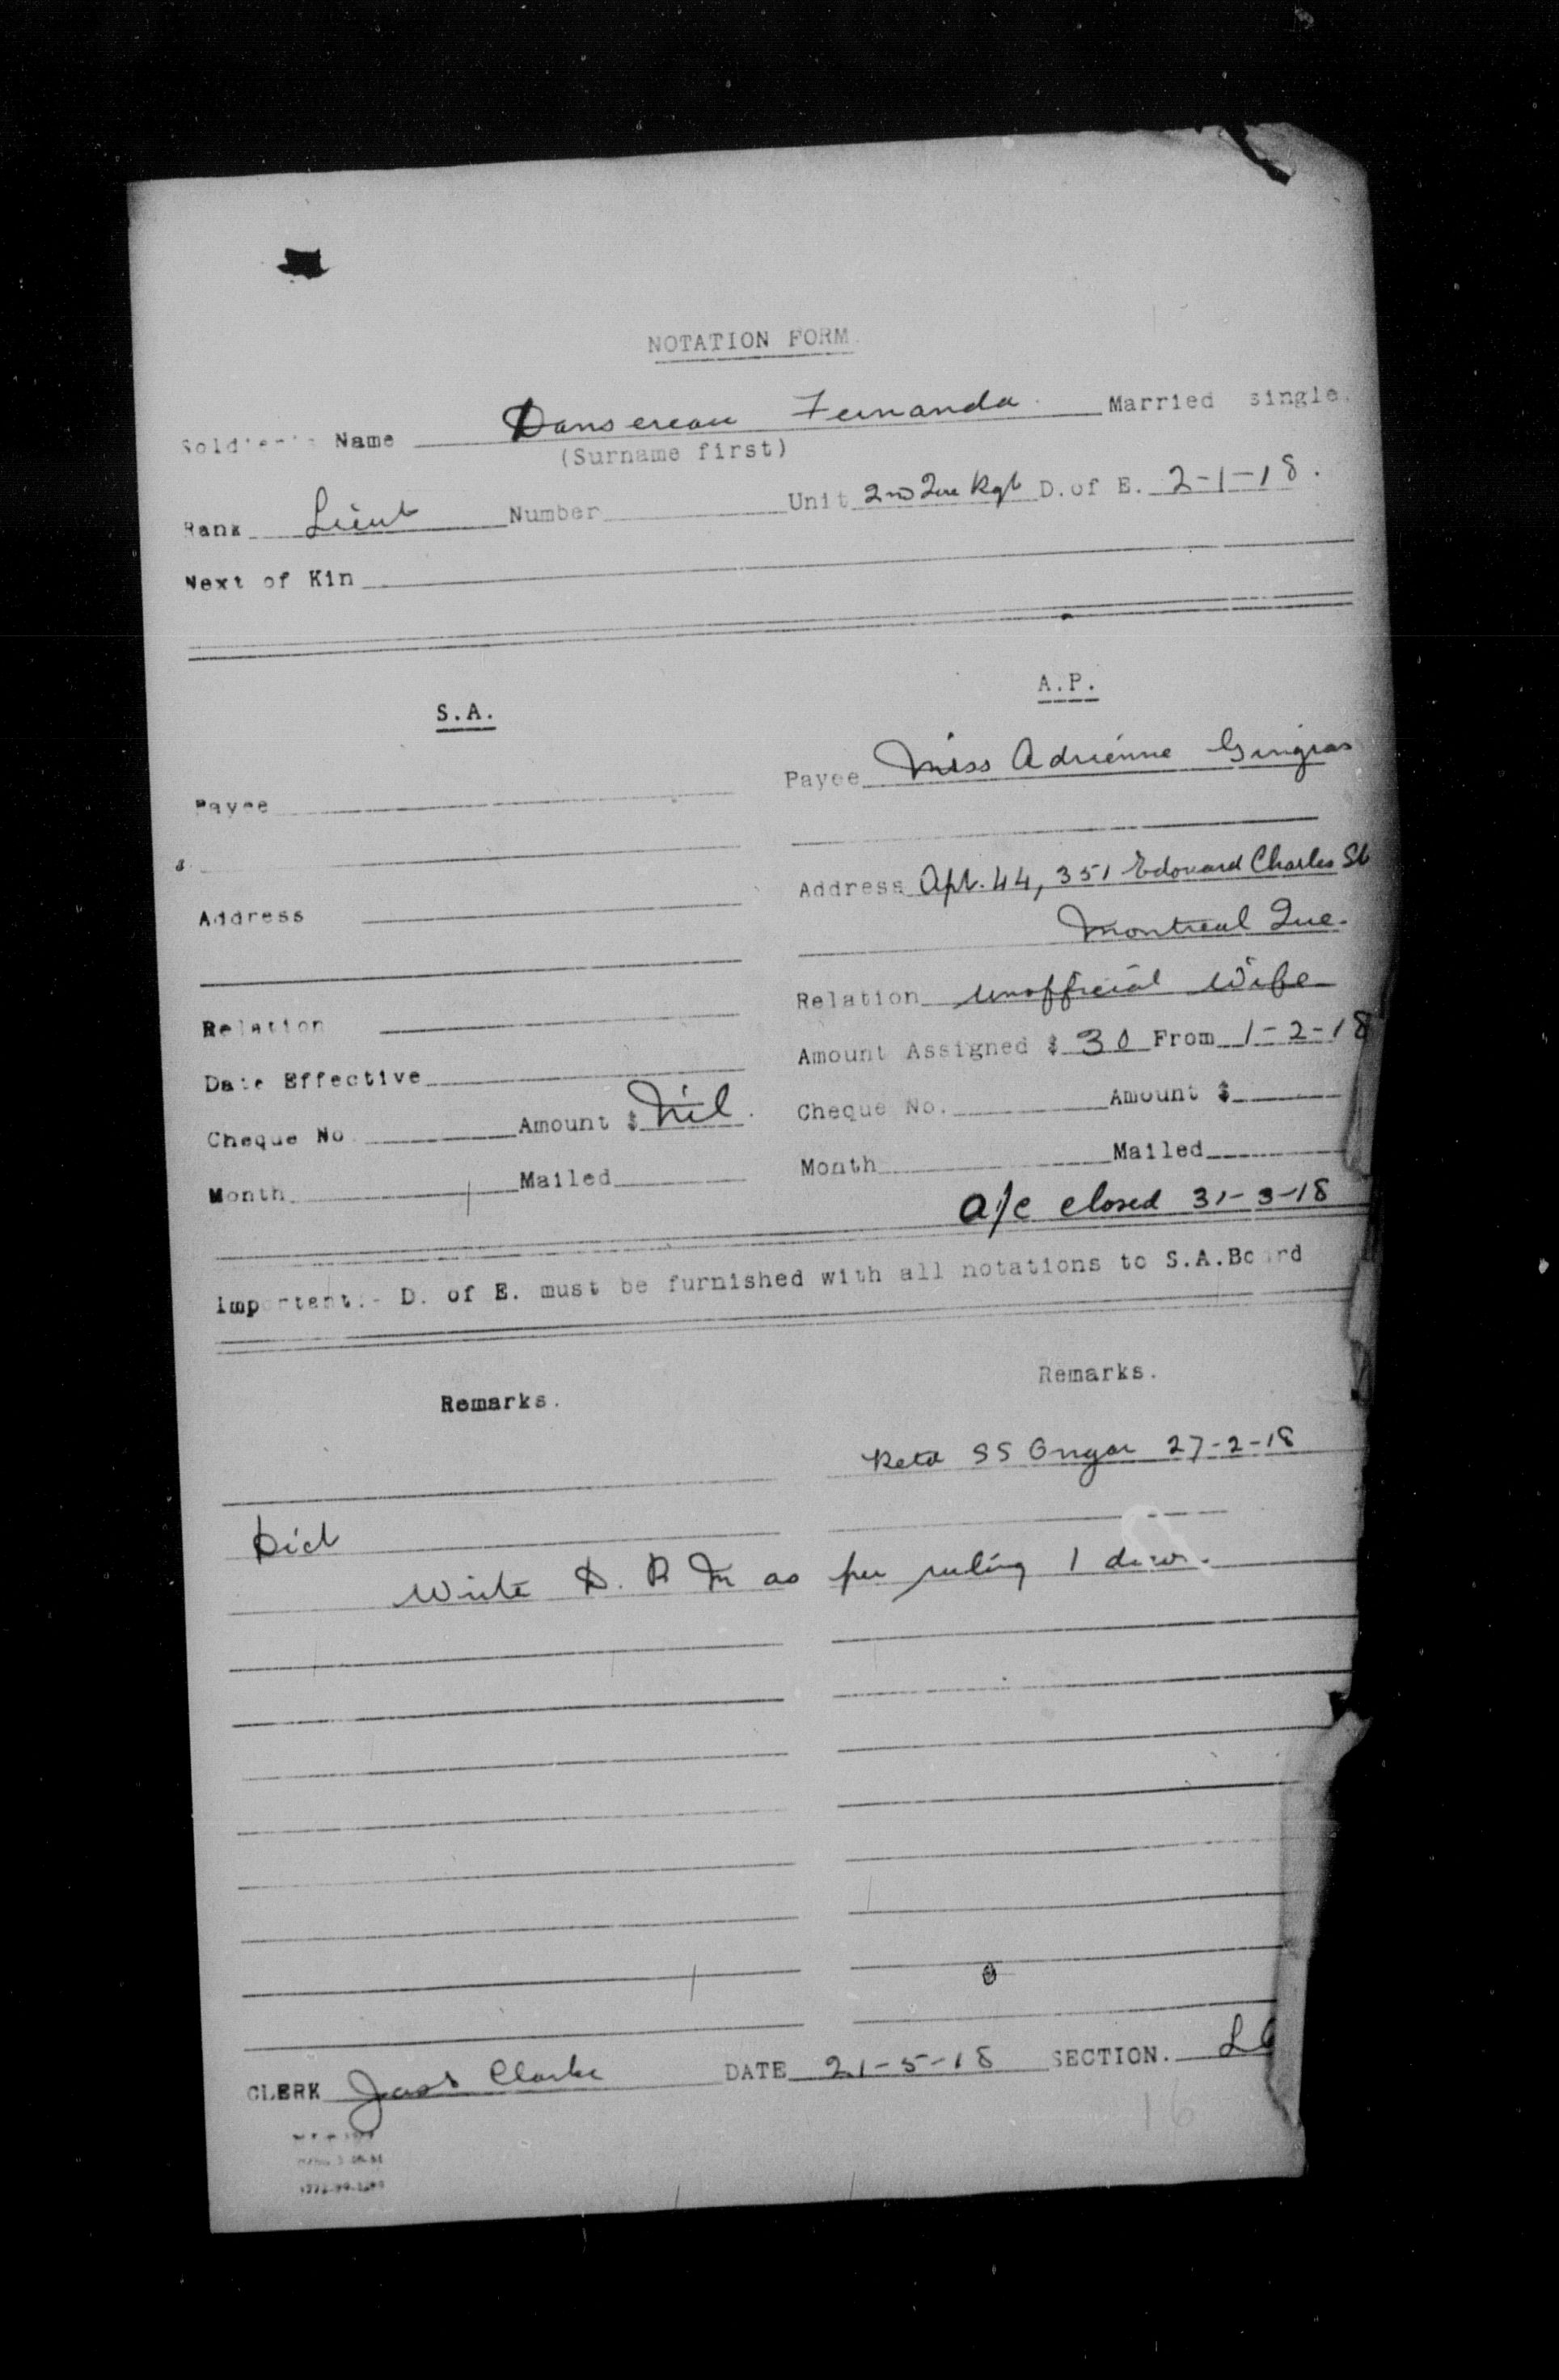 NOTATION FORM.
Soldier's Name Dansereau Fernando Married single.
(Surname first)
Rank Lieut Number Unit 2nd Que Rgt D. of E. 2-1-18.
Next of Kin
S.A.
A.P.
Payee
Payee Miss Adrienne Gingras
Address
Address Apt. 44, 351 Edouard Charles St
Montreal Que.
Relation
Relation unofficial Wife
Date Effective
Amount Assigned $ 30 From 1-2-18
Cheque No. Amount $ Nil.
Cheque No. Amount $
Month Mailed
Month Mailed
a/c closed 31-3-18
Important:- D. of E. must be furnished with all notations to S.A.Board
Remarks.
Remarks.
Retd SS 27-2-18
Write D. R as per ruling 1
CLERK Clarke DATE 21-5-18 SECTION.
16